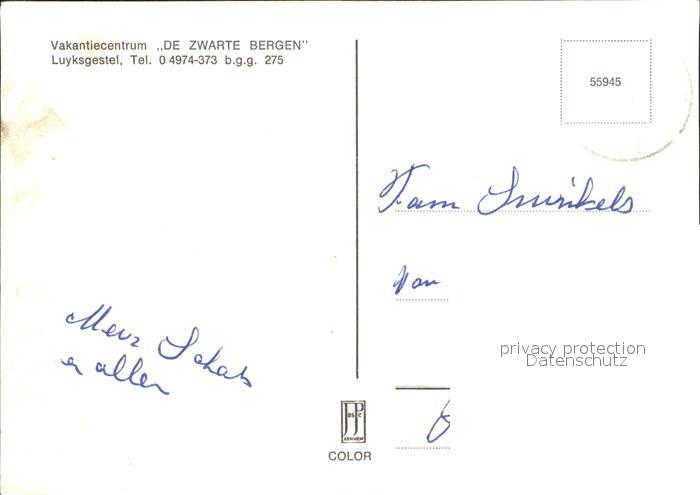 Vakantiecentrum ,,DE ZWARTE BERGEN"
Luyksgestel, Tel. 0 4974-373 b.g.g. 275
55945
Fam
Van
en allen
privacy protection
Datenschutz
COLOR